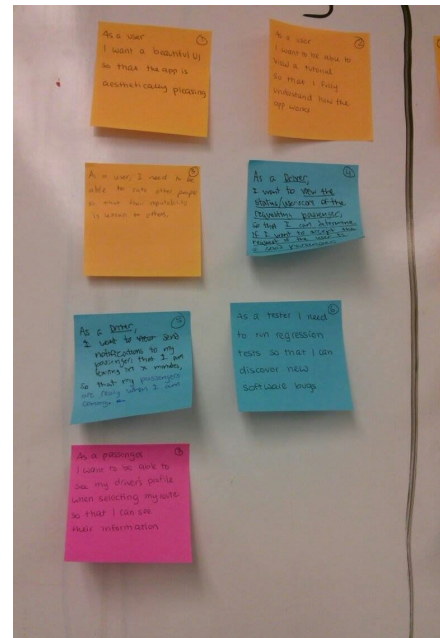 1
As a user
I want a beautiful UI
so that the app is
aesthetically pleasing
2
As a user
I want to be able to
view a tutorial
so that I fully
understand how the
app works
3
As a user, I need to be
able to rate other people
so that their reputability
is known to others.
4
As a Driver,
I want to view the
status/userscore of the
requesting passenger,
so that I can determine
if I want to accept the
request if the user is
a good passenger
5
As a Driver,
I want to send
notifications to my
passengers that I am
leaving in X minutes,
so that my passengers
are ready when I am
coming.
6
As a tester I need
to run regression
tests so that I can
discover new
software bugs.
As a passenger
I want to be able to
see my driver's profile
when selecting my
so that I can see
their information